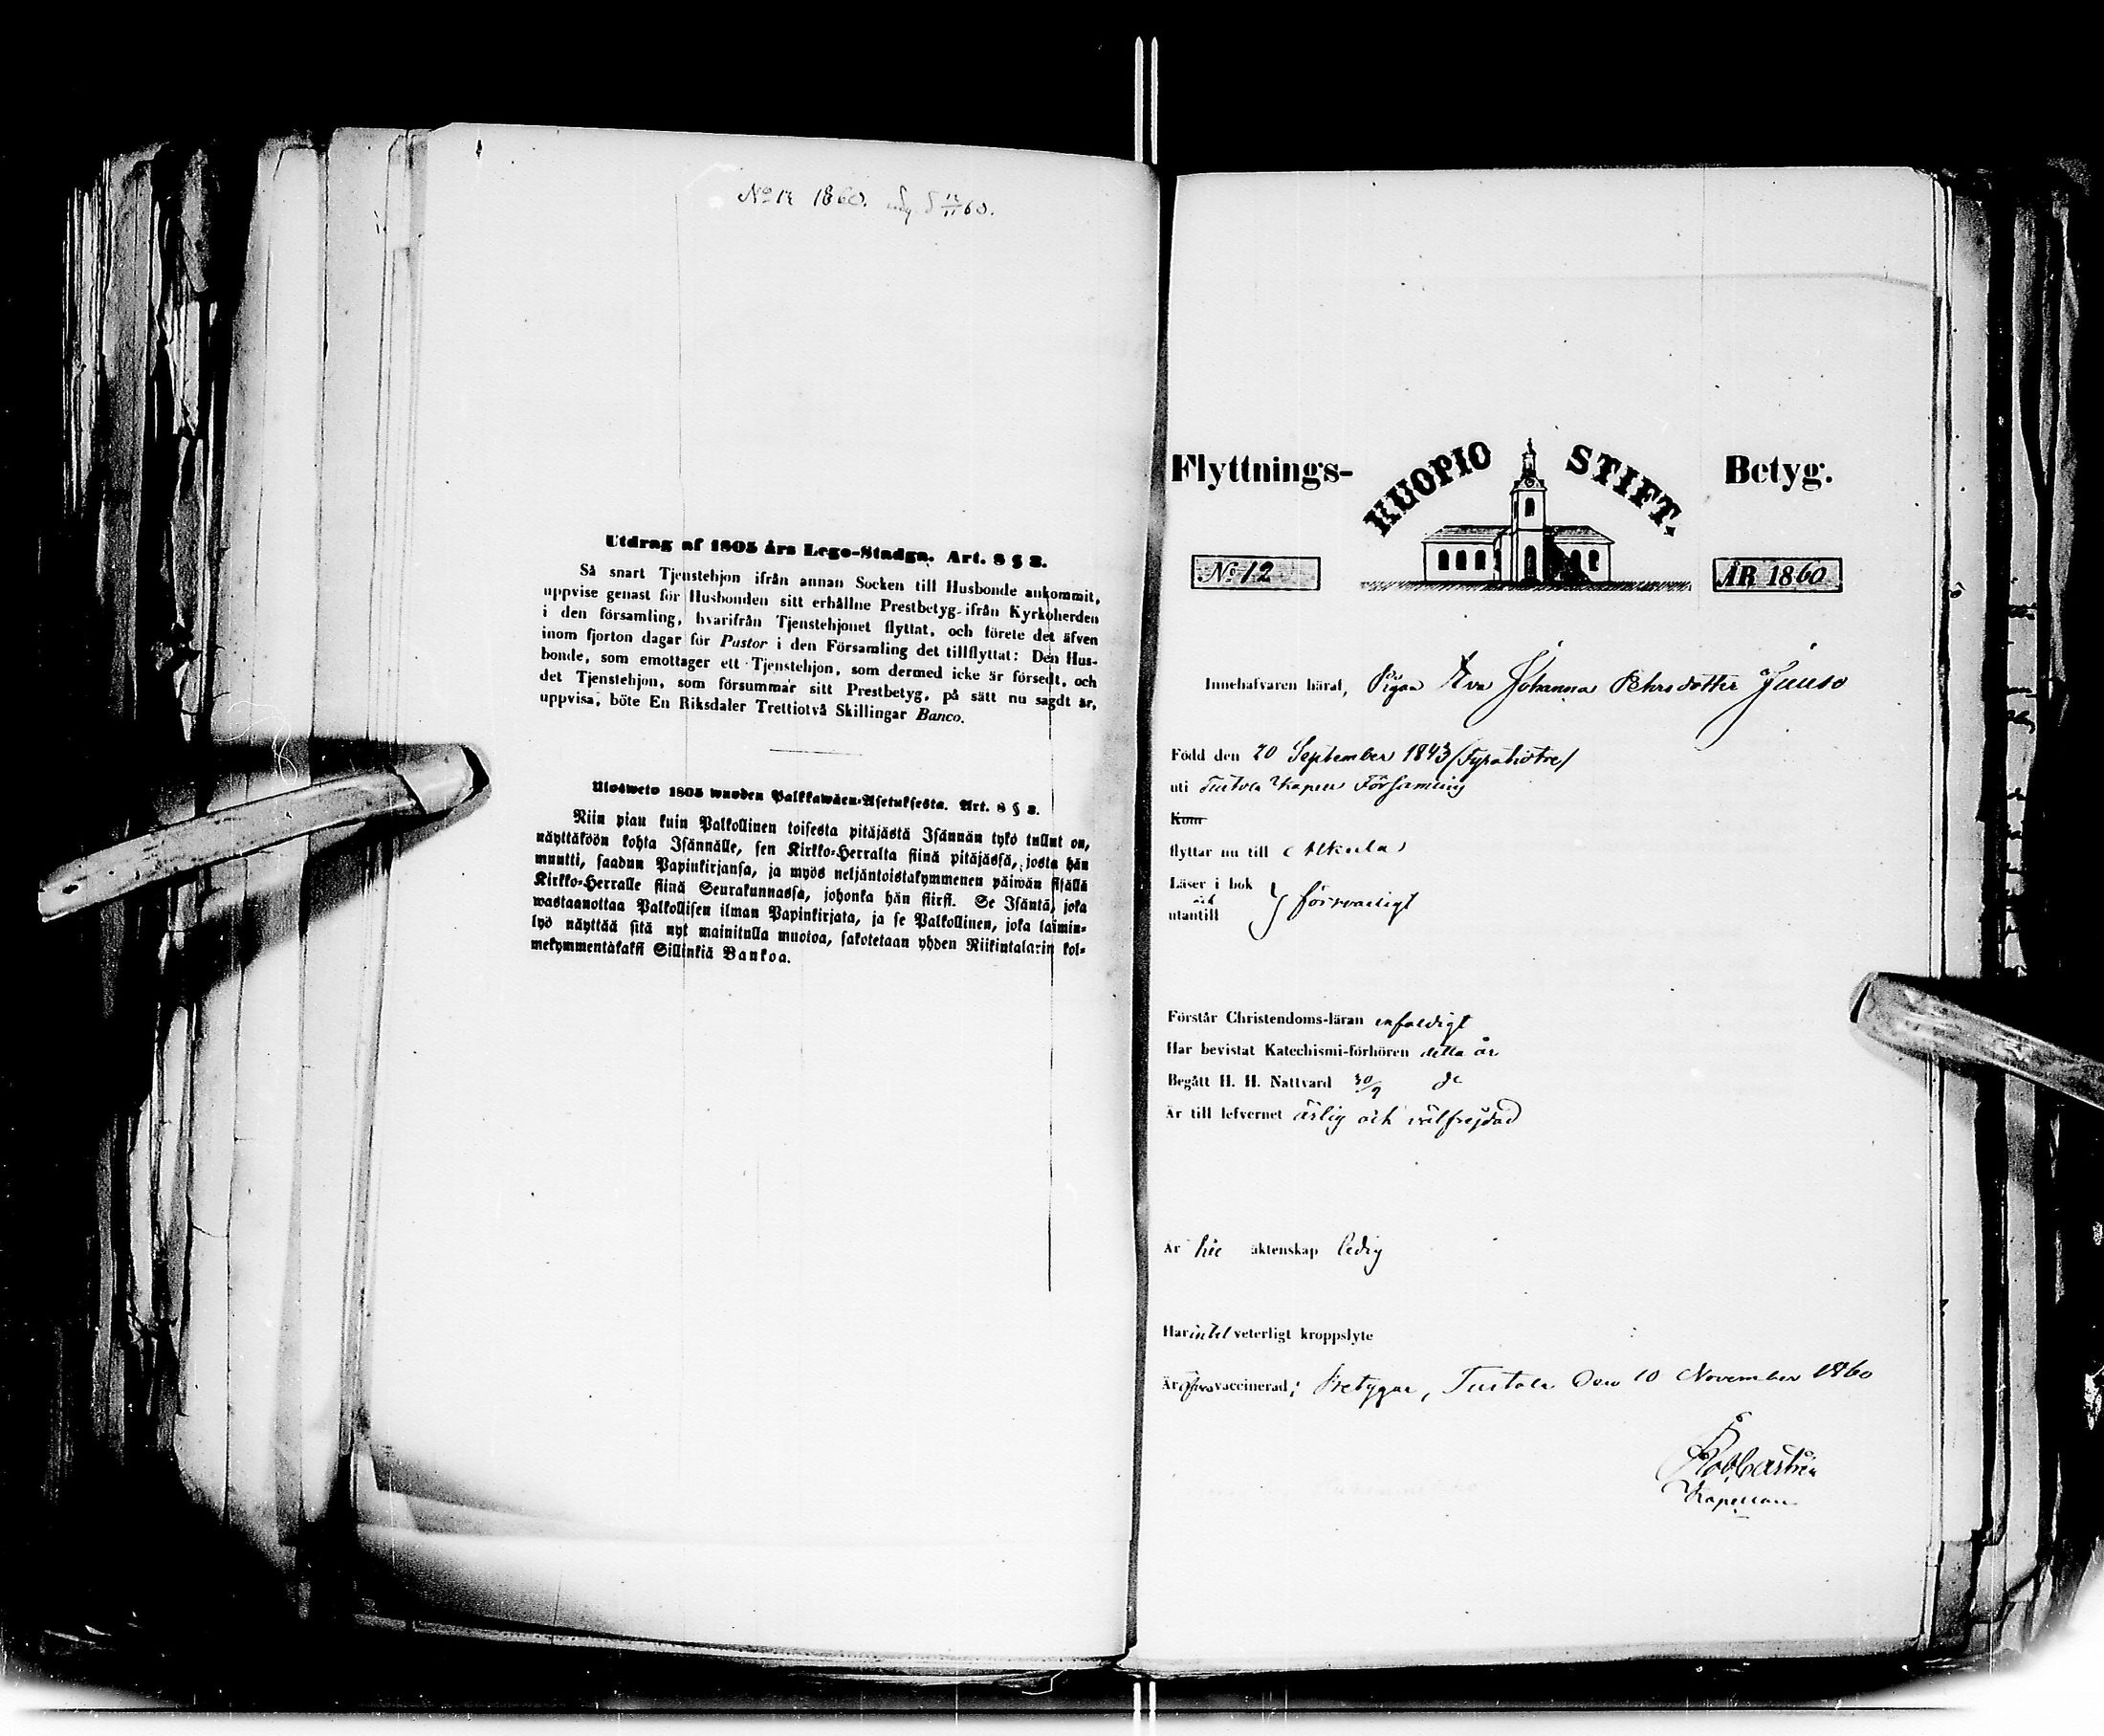 No 12 1860.
Utdrag af 1805 års Lego-Stadga. Art. 8 § 2.
Så snart Tjenstehjon ifrån annan Socken till Husbonde ankommit,
uppvise genast för Husbonden sitt erhållne Prestbetyg ifrån Kyrkoherden
i den församling, hvarifrån Tjenstehjonet flyttat, och förete det äfven
inom fjorton dagar för Pastor i den Församling det tillflyttat: Den Hus-
bonde, som emottager ett Tjenstehjon, som dermed icke är försedt, och
det Tjenstehjon, som försummar sitt Prestbetyg, på sätt nu sagdt är,
uppvisa, böte En Riksdaler Trettiotvå Skillingar Banco.
Ulosweto 1805 wuoden Palkkawäen-Asetuksesta. Art. 8 § 2.
Niin pian kuin Palkollinen toisesta pitäjästä Isännän tykö tullut on,
näyttäköön kohta Isännälle, sen Kirkko-Herralta siinä pitäjässä, josta hän
muutti, saadun Papinkirjansa, ja myös neljäntoistakymmenen päiwän sisällä
Kirkko-Herralle siinä Seurakunnassa, johonka hän siirsi. Se Isäntä, joka
wastaanottaa Palkollisen ilman Papinkirjata, ja se Palkollinen, joka laimin-
lyö näyttää sitä nyt mainitulla muotoa, sakotetaan yhden Riikintalarin kol-
mekymmentäkaksi Sillinkiä Bankoa.
Flyttnings- KUOPIO STIFT. Betyg.
No 12 ÅR 1860
Innehafvaren häraf, Pigan Eva Johanna Pehrsdotter Juuso
Född den 20 September 1843 (fyratiotre)
uti Turtola Kapell Församling
Kom
flyttar nu till Alkula
Läser i bok
och
utantill } försvarligt
Förstår Christendoms-läran enfaldigt
Har bevistat Katechismi-förhören detta år
Begått H. H. Nattvard 30/9 d:o
Är till lefvernet ärlig och välfrejdad
Är till äktenskap ledig
Har intet veterligt kroppslyte
Är vaccinerad; Betygar, Turtola den 10 November 1860
Kapellan